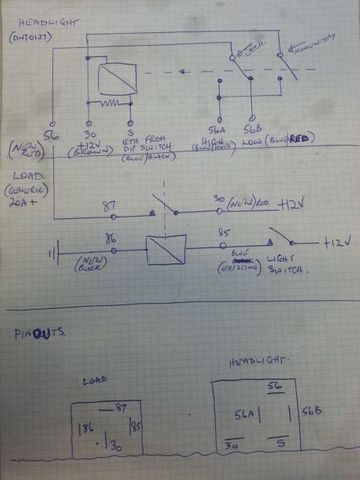 HEADLIGHT
(DNI0127)
LATCH.
MOMENTARY
56 30 S 56A 56B
(NEW RED) +12V (BROWN) ETH FROM DIP SWITCH (BLUE/BLACK) HIGH LOW (BLUE/RED)
LOAD.
(GENERIC)
20A+
87 30 (NEW) RED +12V
86 85 +12V
(NEW BLACK) BLUE (EXISTING) LIGHT SWITCH.
PINOUTS.
LOAD
HEADLIGHT.
87
86 85
30
56
56A 56B
30 S